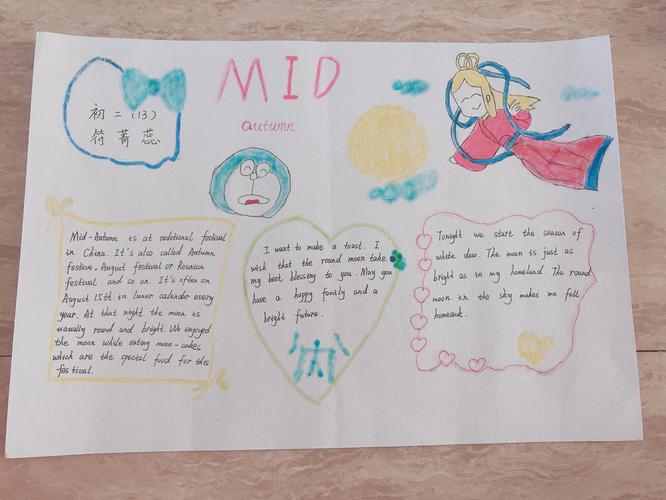 初二(13)
符菁蕊
MID
autumn
Mid-Autumn is at raditional festival
in China. It's also called Autumn
festive. August festival or Reunion
festival and so on. It's often on
August 15th in lunar calendar every
year. At that night the moon is
usually round and bright. We enjoyed
the moon while eating moon-cakes
which are the special food for this
festival.
I want to make a toast. I
wish that the round moon take
my best blessing to you. May you
have a happy family and a
bright future.
Tonight we start the season of
white dew. The moon is just as
bright as in my homeland. The round
moon in the sky makes me fell
homesick.